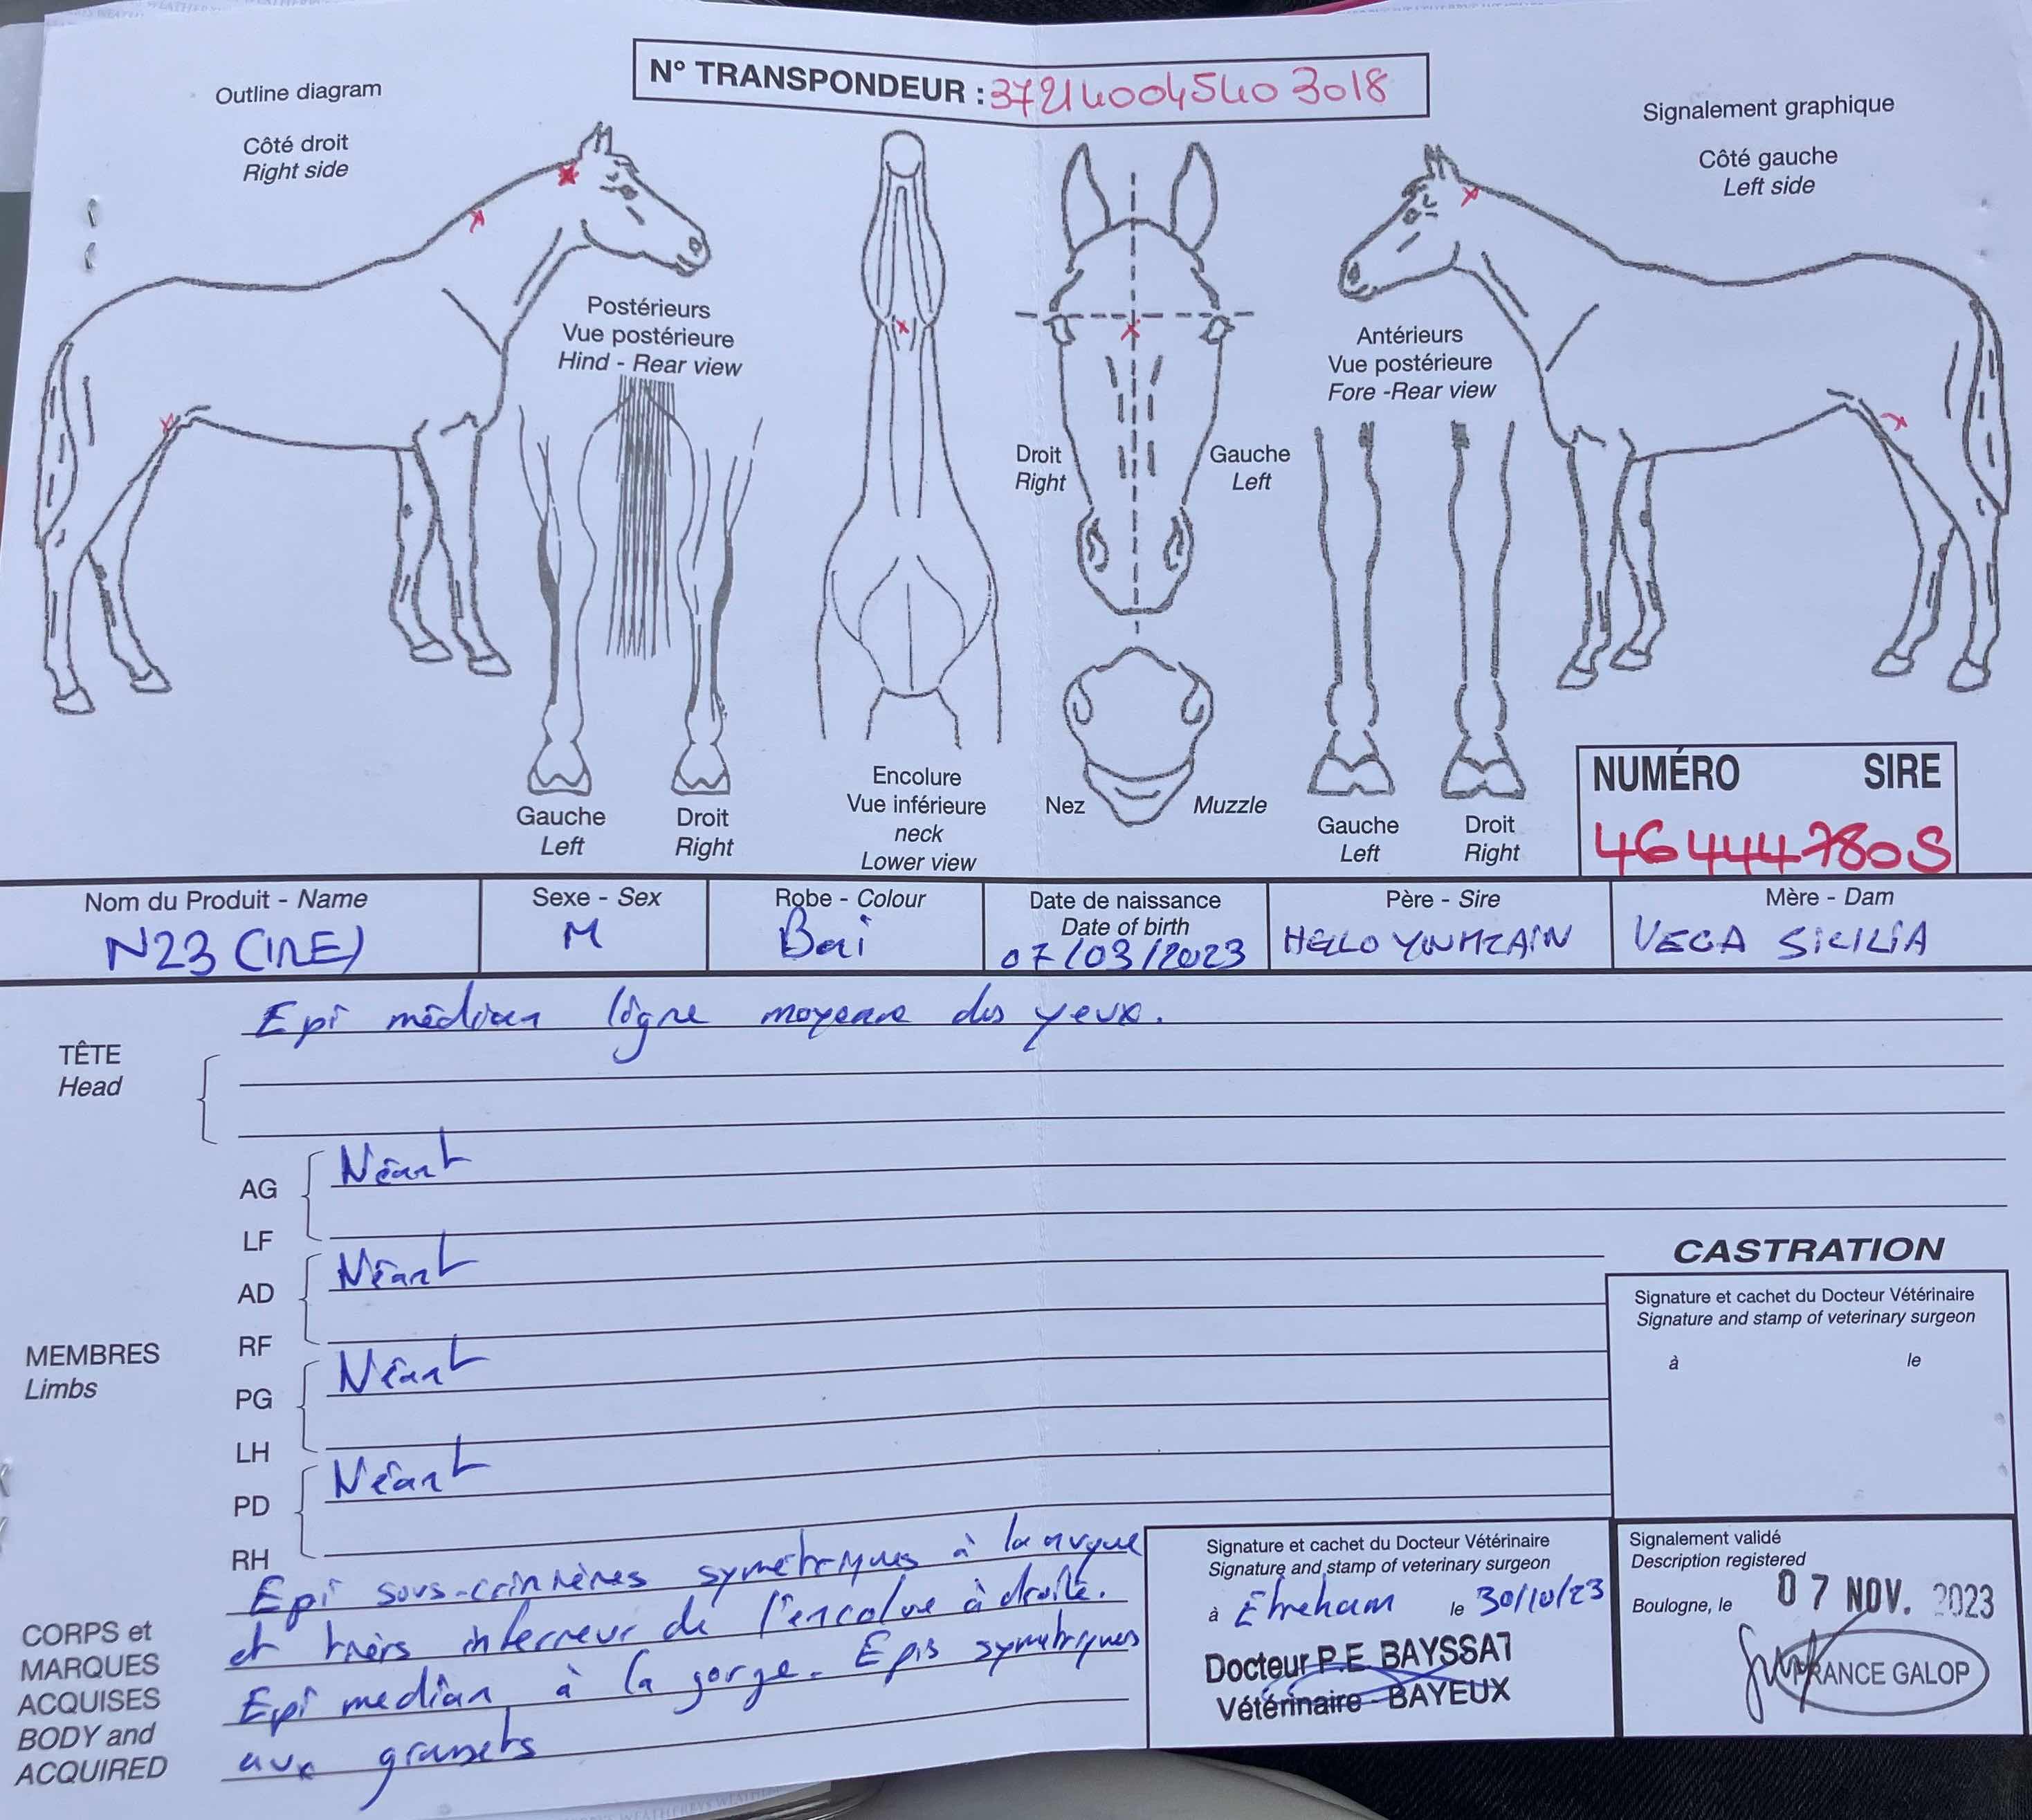 N° TRANSPONDEUR : 372140045403018
Outline diagram
Côté droit
Right side
Signalement graphique
Côté gauche
Left side
Postérieurs
Vue postérieure
Hind - Rear view
Antérieurs
Vue postérieure
Fore -Rear view
Droit
Right
Gauche
Left
Gauche
Left
Droit
Right
Encolure
Vue inférieure
neck
Lower view
Nez
Muzzle
Gauche
Left
Droit
Right
NUMÉRO SIRE
46444780S
Nom du Produit - Name
N23 (IRE)
Sexe - Sex
M
Robe - Colour
Bai
Date de naissance
Date of birth
07/03/2023
Père - Sire
HELLO YOUMZAIN
Mère - Dam
VEGA SICILIA
TÊTE
Head
Epi médian ligne moyenne des yeux.
MEMBRES
Limbs
AG
LF
Néant
AD
RF
Néant
PG
LH
Néant
PD
RH
Néant
CORPS et
MARQUES
ACQUISES
BODY and
ACQUIRED
Epi sous-crinières symetriques à la nuque
et tiers inferieur de l'encolure à droite.
Epi median à la gorge. Epis symetriques
aux grassets
CASTRATION
Signature et cachet du Docteur Vétérinaire
Signature and stamp of veterinary surgeon
à le
Signature et cachet du Docteur Vétérinaire
Signature and stamp of veterinary surgeon
à Etreham le 30/10/23
Docteur P.E BAYSSAT
Vétérinaire - BAYEUX
Signalement validé
Description registered
Boulogne, le 07 NOV. 2023
FRANCE GALOP